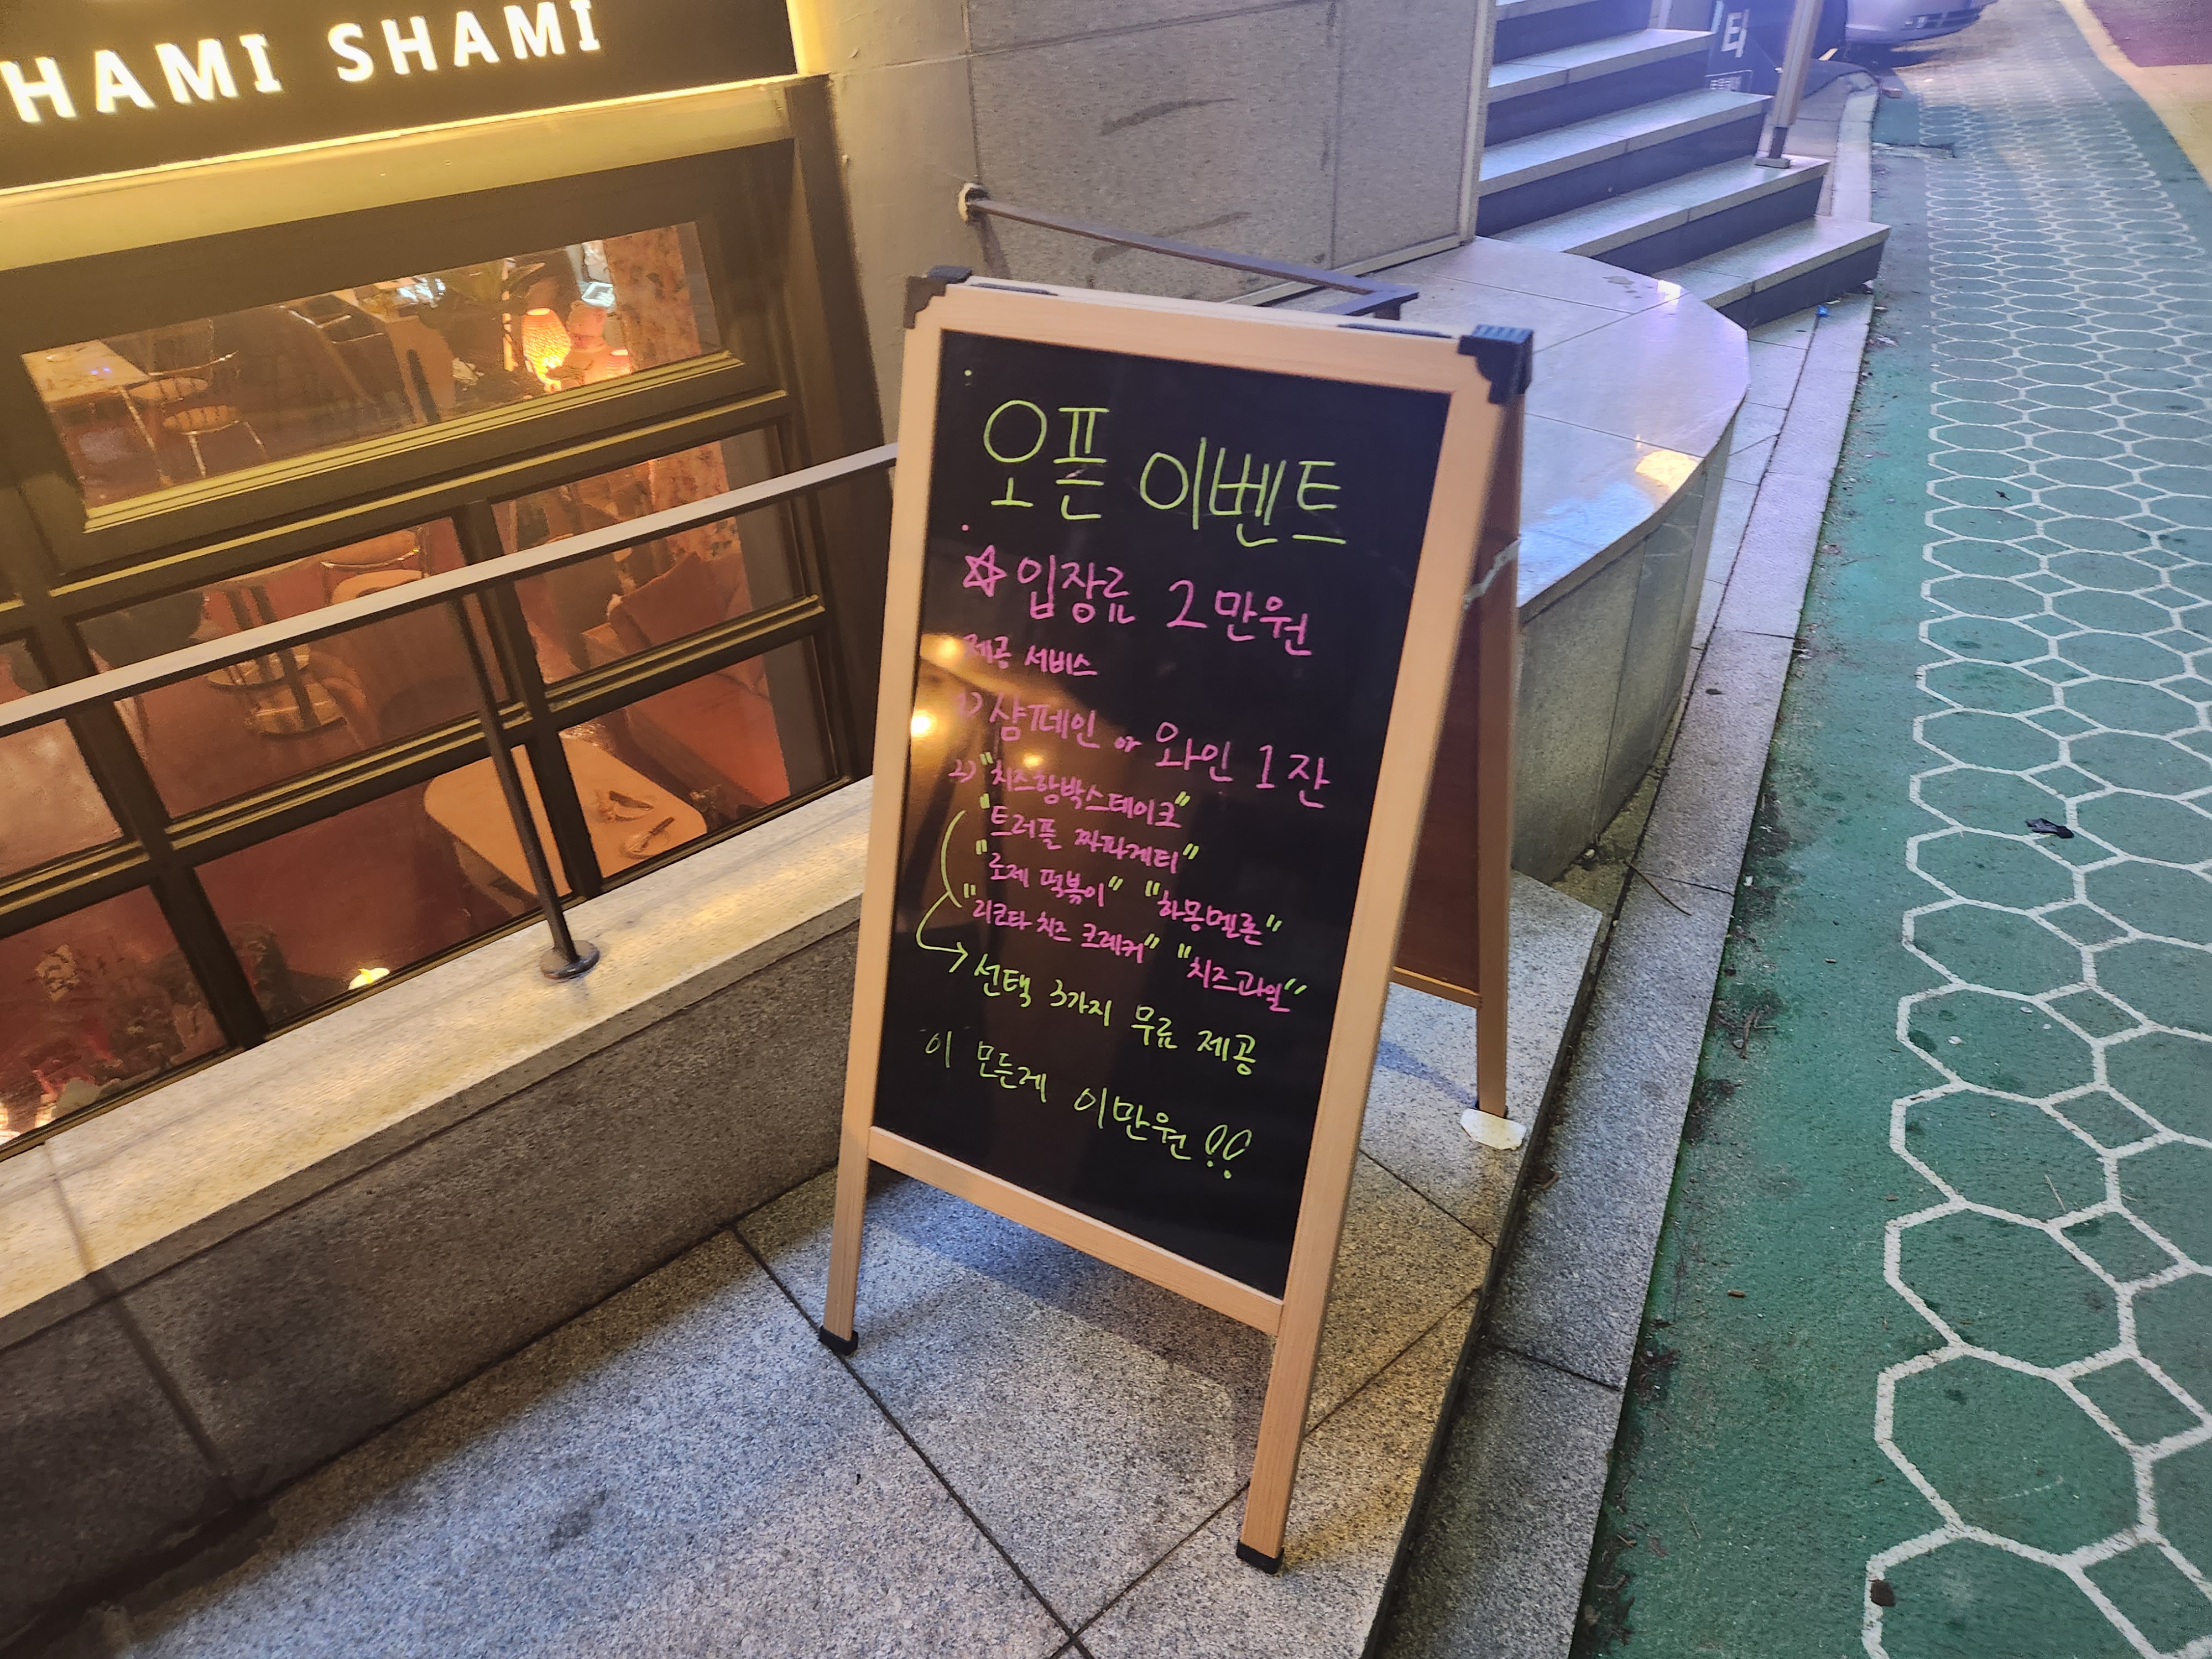 HAMI SHAMI
터
오픈 이벤트
☆입장료 2만원
제공 서비스
1) 샴페인 or 와인 1잔
2) "치즈함박스테이크"
"트러플 짜파게티"
"로제 떡볶이" "하몽멜론"
"리코타 치즈 크래커" "치즈과일"
→ 선택 3가지 무료 제공
이 모든게 이만원!!